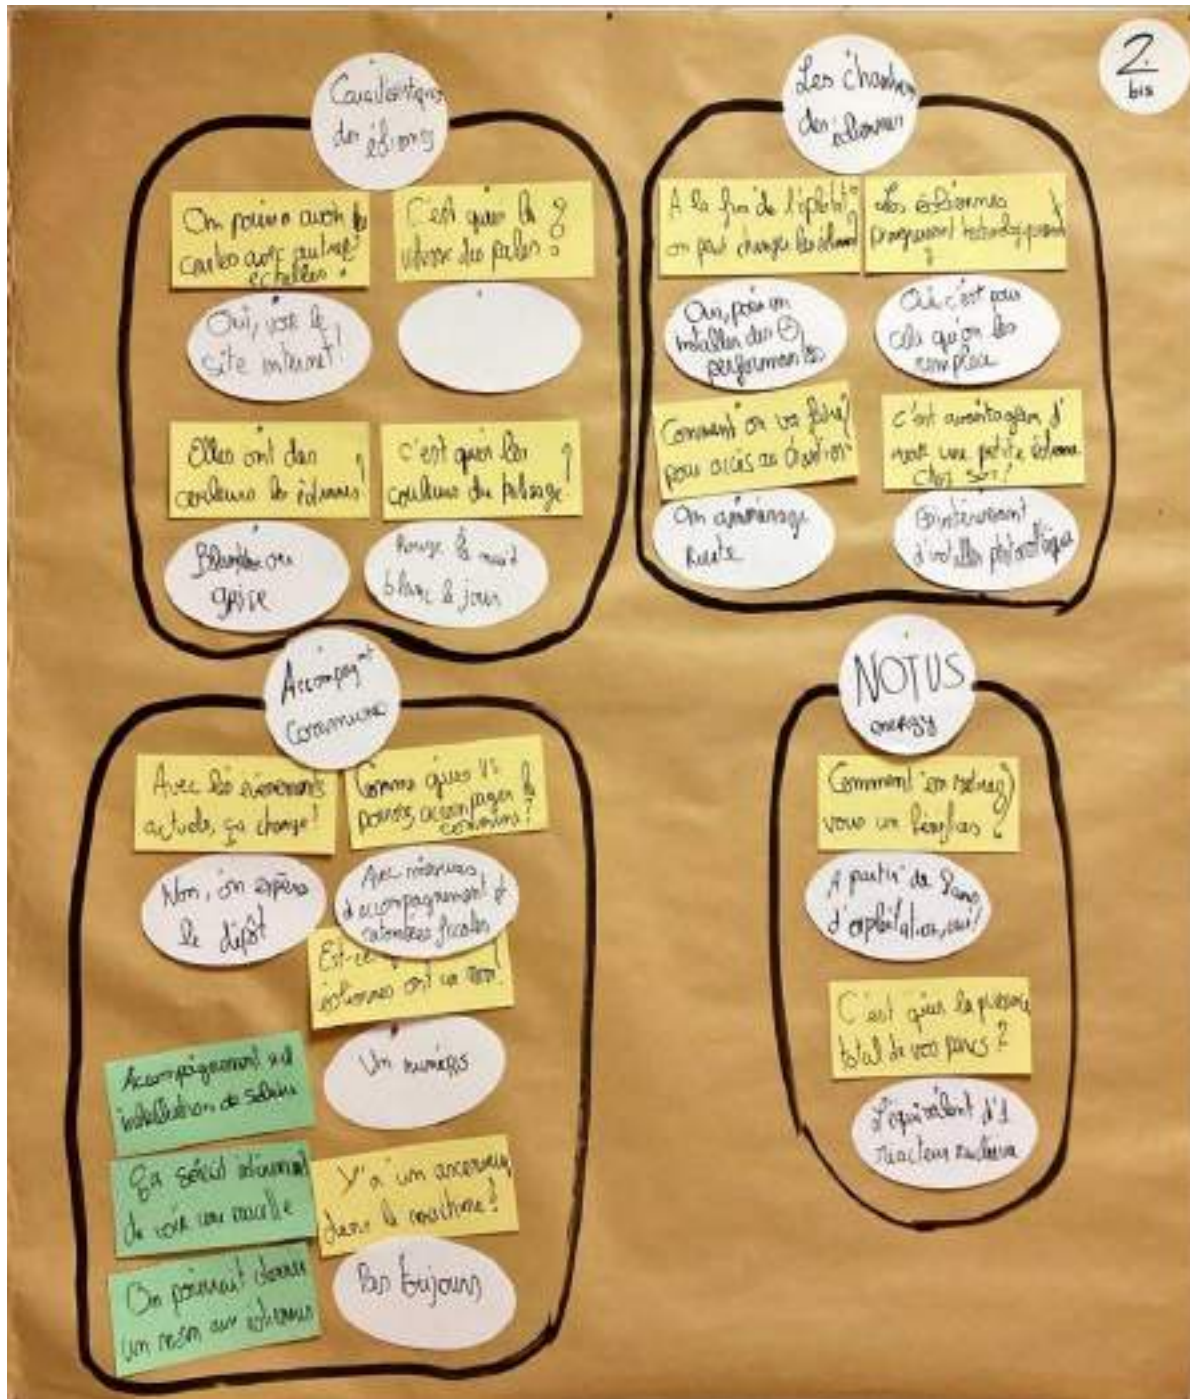 2.
bis
Caractéristiques
des éoliennes
On pourra avoir les
cartes avec autres
échelles ?
Oui, voir le
site internet !
C'est quoi la
vitesse des pales ?
Elles ont des
couleurs les éoliennes ?
Blanche ou
grise
C'est quoi les
couleurs du balisage ?
Rouge la nuit
blanc le jour
Les chantiers
des éoliennes
A la fin de l'exploitat°
on peut changer les éoliennes ?
Oui, pour en
installer des
performantes
Les éoliennes
progressent technologiquement ?
Oui c'est pour
cela qu'on les
remplace
Comment on va faire
pour accès au chantier ?
On aménage
route
C'est avantageux d'
avoir une petite éolienne
chez soi ?
+ intéressant
d'installer photovoltaïque
Accompagmt
Commune
Avec les évènements
actuels, ça change ?
Non, on espère
le dépôt
Comme quoi vs
pouvez accompagner la
commune ?
Avec mesures
d'accompagnement et
retombées fiscales
Est-ce
éoliennes ont un nom ?
Un numéro
Accompagnement
installation de solaire
Ça serait intéressant
de voir une nacelle
On pourrait donner
un nom aux éoliennes
Y'a un ascenseur
dans la machine ?
Pas toujours
NOTUS
energy
Comment en retirez
vous un bénéfice ?
A partir de
d'exploitation, oui !
C'est quoi la puissance
total de vos parcs ?
L'équivalent d'1
réacteur nucléaire